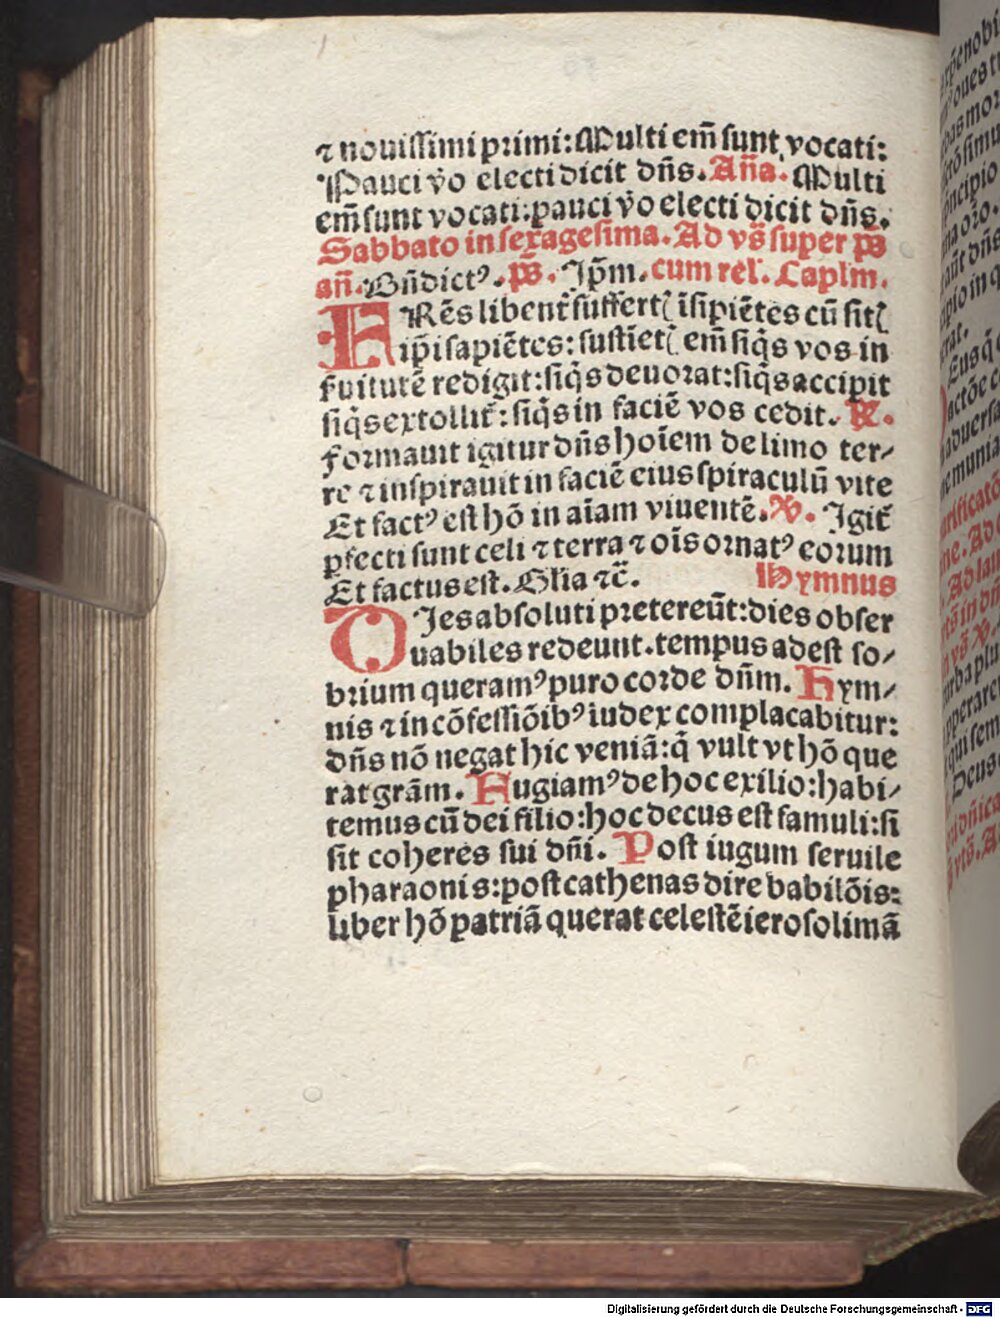 ⁊ nouissimi primi: Multi em̃ sunt vocati:
Pauci v̊o electi dicit dñs. Añа. Multi
em̃ sunt vocati: pauci v̊o electi dicit dñs.
Sabbato in sexagesima. Ad vs̃ super ps̃
añ. Bñdictꝰ. ps̃. Ip̄m. cum rel̃. Capl̃m.
FRẽs libent̃ suffert[ ĩsipiẽtes cũ sit[
ip̃i sapiẽtes: sustĩet[ em̃ siq̃s vos in
suitutẽ redigit: siq̃s deuorat: siq̃s accipit
siq̃s extollit̃: siq̃s in faciẽ vos cedit. R̃.
formauit igitur dñs hoĩem de limo ter⸗
re ⁊ inspirauit in faciẽ eius spiraculũ vite
Et factꝰ est hõ in aĩam viuentẽ. V. Igit̃
pfecti sunt celi ⁊ terra ⁊ oĩs ornatꝰ eorum
Et factus est. Gl̃ia ⁊c̃. Hymnus
DJes absoluti pretereũt: dies obser
uabiles redeunt. tempus adest so⸗
brium queramꝰ puro corde dñm. Hym⸗
nis ⁊ in cõfessiõibꝰ iudex complacabitur:
dñs nõ negat hic veniã: q̃ vult vt hõ que
rat grãm. Fugiamꝰ de hoc exilio: habi⸗
temus cũ dei filio: hoc decus est famuli: si
sit coheres sui dñi. Post iugum seruile
pharaonis: post cathenas dire babilõis:
liber hõ patriã querat celestẽ ierosolimã
Digitalisierung gefördert durch die Deutsche Forschungsgemeinschaft - DFG